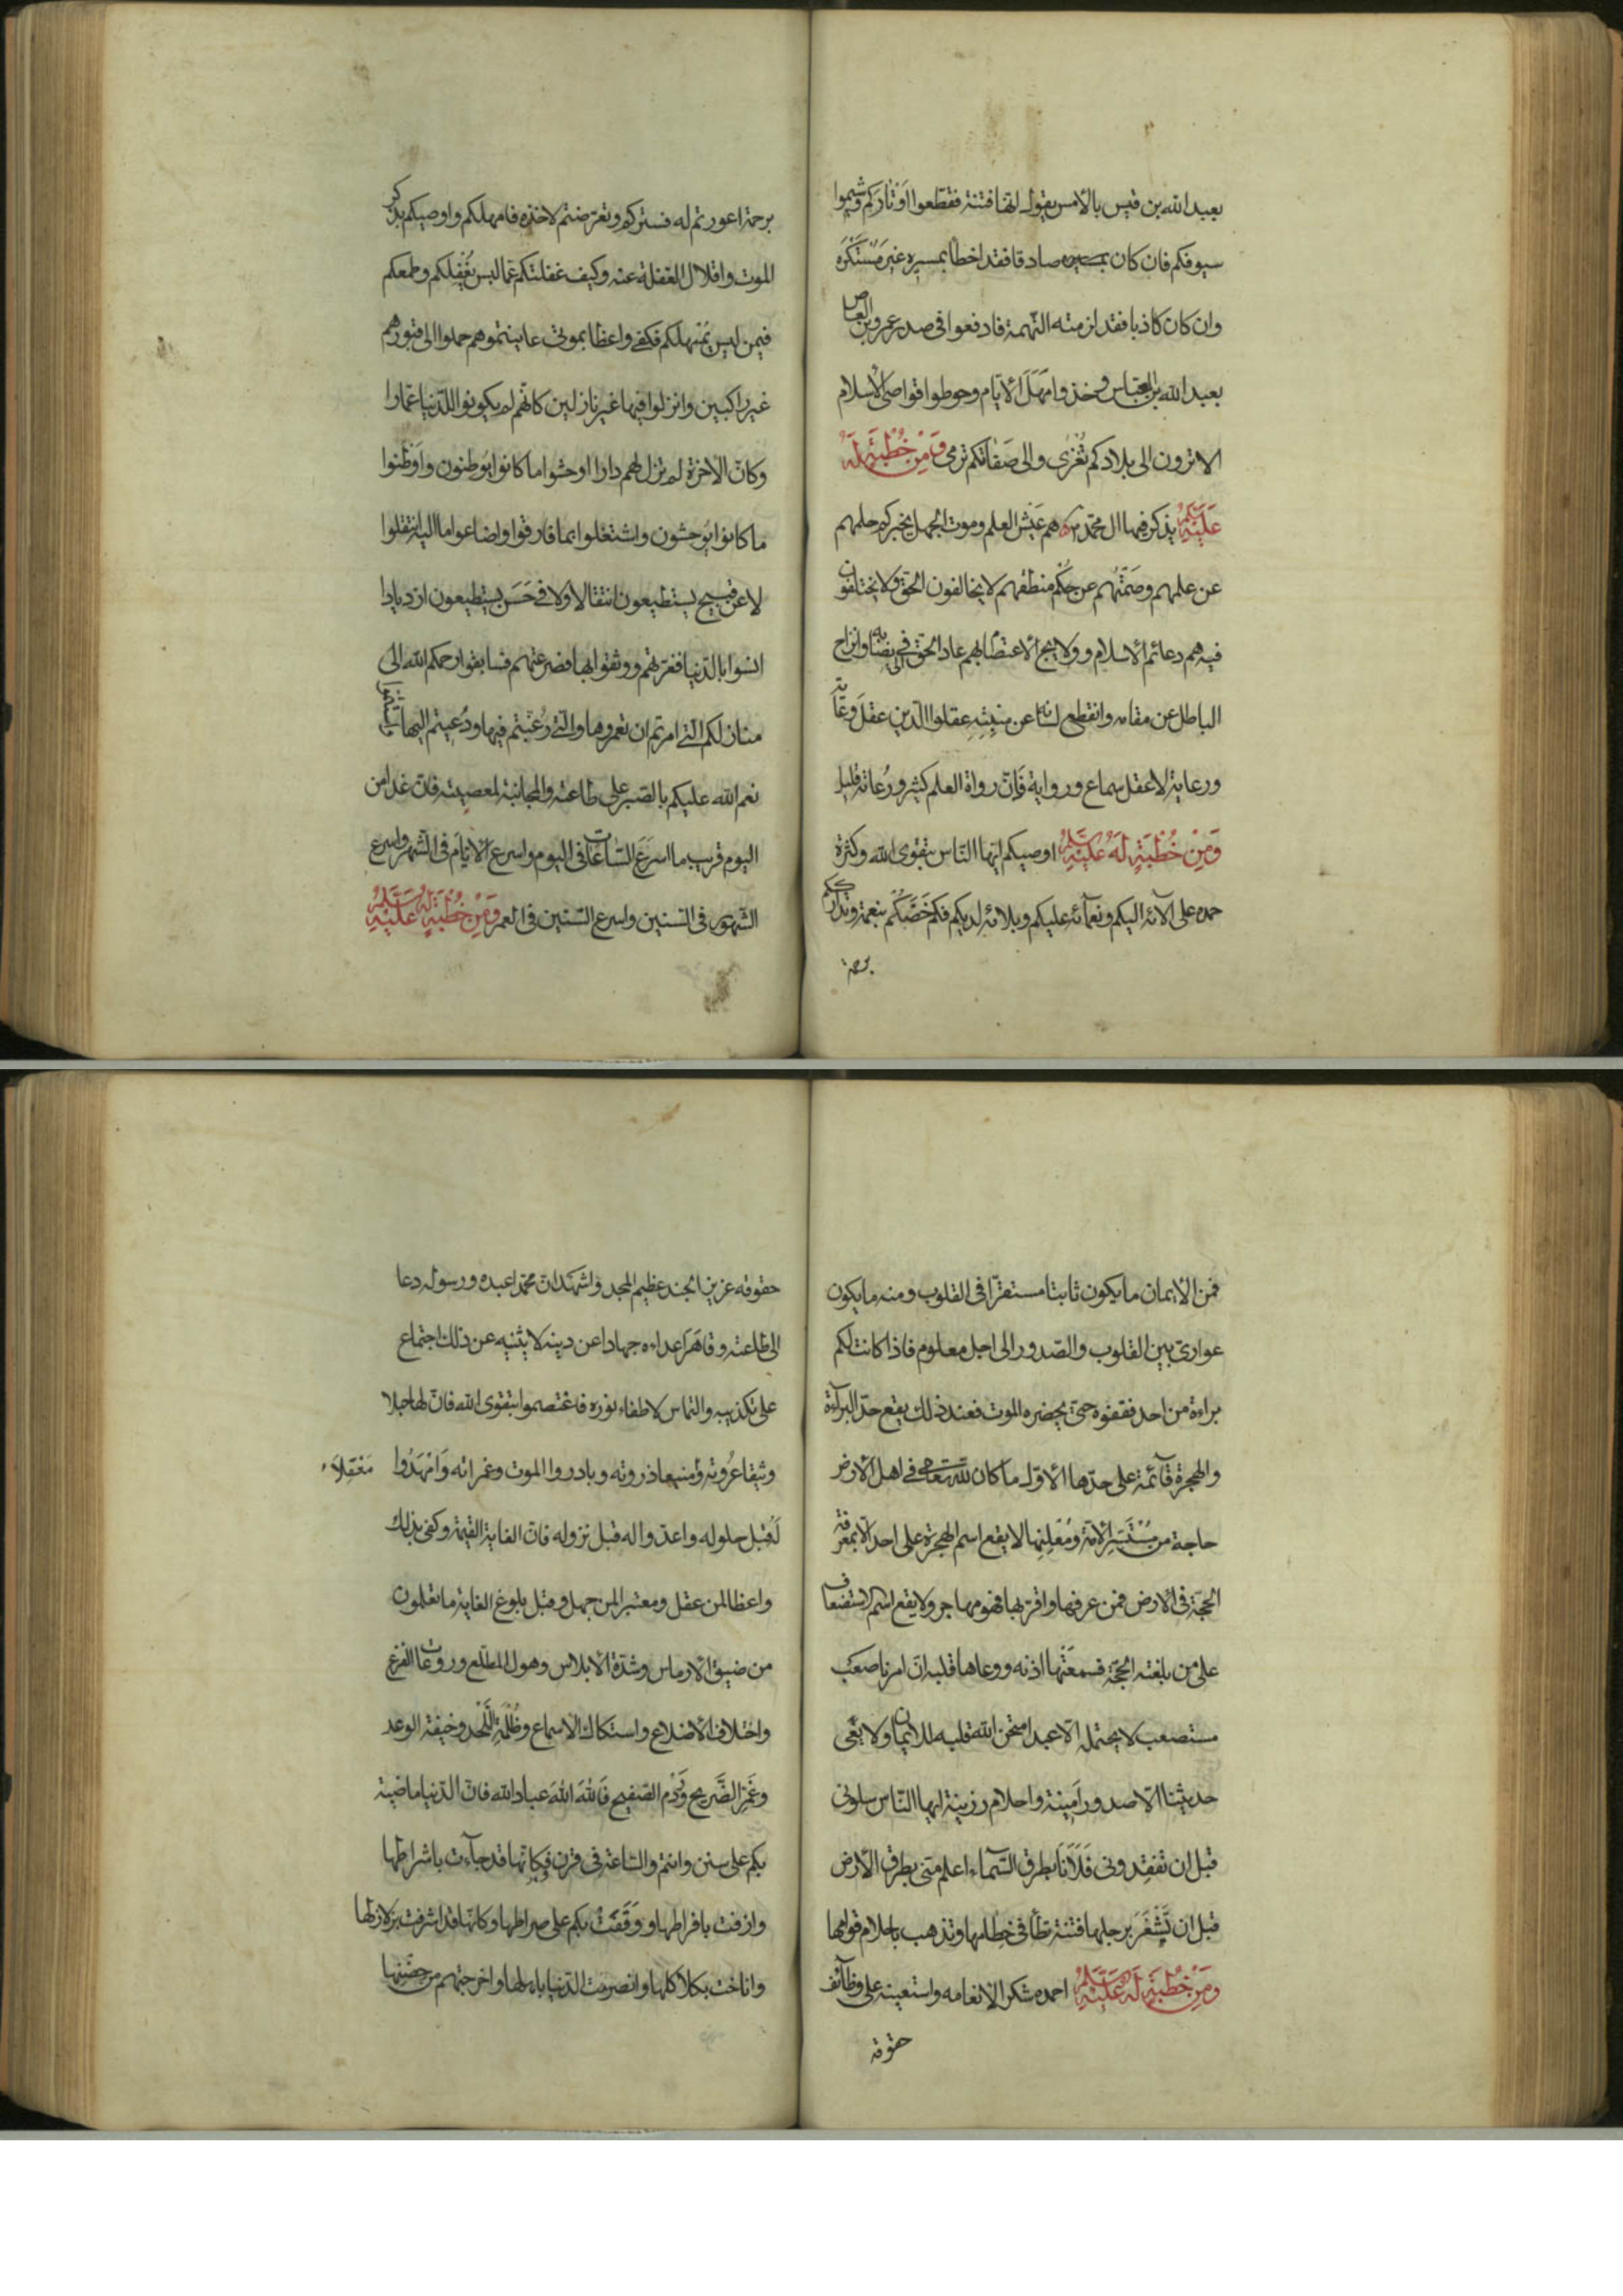 بعبد الله بن قيس بالأمس يقول انها فتنة فقطعوا اوتاركم وشيموا
سيوفكم فان كان صادقا فقد اخطأ بمسيره غير مستكره
وان كان كاذبا فقد لزمته التهمة فادفعوا في صدر عمرو بن العاص
بعبد الله بن العباس وخذوا مهل الأيام وحوطوا قواصي الأسلام
الا ترون الى بلادكم تغزى والى صفاتكم ترمى وَمِنْ خُطْبَةٍ لَهُ
عليه السلم يذكر فيها ال محمد هم عيش العلم وموت الجهل يخبركم حلمهم
عن علمهم وصمتهم عن حكم منطقهم لا يخالفون الحق ولا يختلفون
فيه هم دعائم الأسلام وولائج الأعتصام بهم عاد الحق في نصابه وانزاح
الباطل عن مقامه وانقطع لسانه عن منبته عقلوا الدين عقل وعاية
ورعاية لا عقل سماع ورواية فان رواة العلم كثير ورعاته قليل
وَمِنْ خُطْبَةٍ لَهُ عليه السلم اوصيكم ايها الناس بتقوى الله وكثرة
حمده على آلائه اليكم ونعمآئه عليكم وبلائه لديكم فكم خصكم بنعمة وتدارككم
برحمة
برحمة اعورتم له فستركم وتعرضتم لاخذه فامهلكم واوصيكم بذكر
الموت واقلال الغفلة عنه وكيف غفلتكم عما ليس يغفلكم وطمعكم
فيمن ليس يمهلكم فكفى واعظا بموتى عاينتموهم حملوا الى قبورهم
غير راكبين وانزلوا فيها غير نازلين كانهم لم يكونوا للدنيا عمارا
وكان الآخرة لم تزل لهم دارا اوحشوا ما كانوا يوطنون واوطنوا
ما كانوا يوحشون واشتغلوا بما فارقوا واضاعوا ما اليه انتقلوا
لا عن قبيح يستطيعون انتقالا ولا في حسن يستطيعون ازديادا
انسوا بالدنيا فغرتهم ووثقوا بها فصرعتهم فسابقوا رحمكم الله الى
منازلكم التي امرتم ان تعمروها والتي رغبتم فيها ودعيتم اليها واستتموا
نعم الله عليكم بالصبر على طاعته والمجانبة لمعصيته فان غدا من
اليوم قريب ما اسرع الساعات في اليوم واسرع الأيام في الشهر واسرع
الشهور في السنين واسرع السنين في العمر وَمِنْ خُطْبَةٍ لَهُ عليه السلم
فمن الأيمان ما يكون ثابتا مستقرا في القلوب ومنه ما يكون
عواري بين القلوب والصدور الى اجل معلوم فاذا كانت لكم
براءة من احد فقفوه حتى يحضره الموت فعند ذلك يقع حد البرآءة
والهجرة قآئمة على حدها الأول ما كان لله تعالى في اهل الأرض
حاجة من مستسر الأمة ومعلنها لا يقع اسم الهجرة على احد الا بمعرفة
الحجة في الأرض فمن عرفها واقر بها فهو مهاجر ولا يقع اسم الاستضعاف
على من بلغته الحجة فسمعتها اذنه ووعاها قلبه ان امرنا صعب
مستصعب لا يحتمله الا عبد امتحن الله قلبه للايمان ولا يعى
حديثنا الا صدور امينة واحلام رزينة ايها الناس سلونى
قبل ان تفقدونى فلأنا بطرق السمآء اعلم منى بطرق الأرض
قبل ان تشغر برجلها فتنة تطأ في خطامها وتذهب باحلام قومها
وَمِنْ خُطْبَةٍ لَهُ عليه السلم احمده شكرا لانعامه واستعينه على وظآئف
حقوقه
حقوقه عزيز الجند عظيم المجد واشهد ان محمدا عبده ورسوله دعا
الى طاعته وقاهر اعداءه جهادا عن دينه لا يثنيه عن ذلك اجتماع
على تكذيبه والتماس لاطفاء نوره فاعتصموا بتقوى الله فان لها حبلا
وثيقا عروته ومنيعا ذروته وبادروا الموت وغمراته وامهدوا
مَعْقِلاً
له قبل حلوله واعدوا له قبل نزوله فان الغاية القيمة وكفى بذلك
واعظا لمن عقل ومعتبرا لمن جهل وقبل بلوغ الغاية ما تعلمون
من ضيق الأرماس وشدة الأبلاس وهول المطلع وروعات الفزع
واختلاف الأضلاع واستكاك الاسماع وظلمة اللحد وخيفة الوعد
وغم الضريح وردم الصفيح فالله الله عباد الله فان الدنيا ماضية
بكم على سنن وانتم والساعة في قرن وكانها قد جآءت باشراطها
وازفت بافراطها ووقفت بكم على صراطها وكانها قد اشرفت بزلازلها
واناخت بكلاكلها وانصرمت الدنيا باهلها واخرجتهم من حضنها